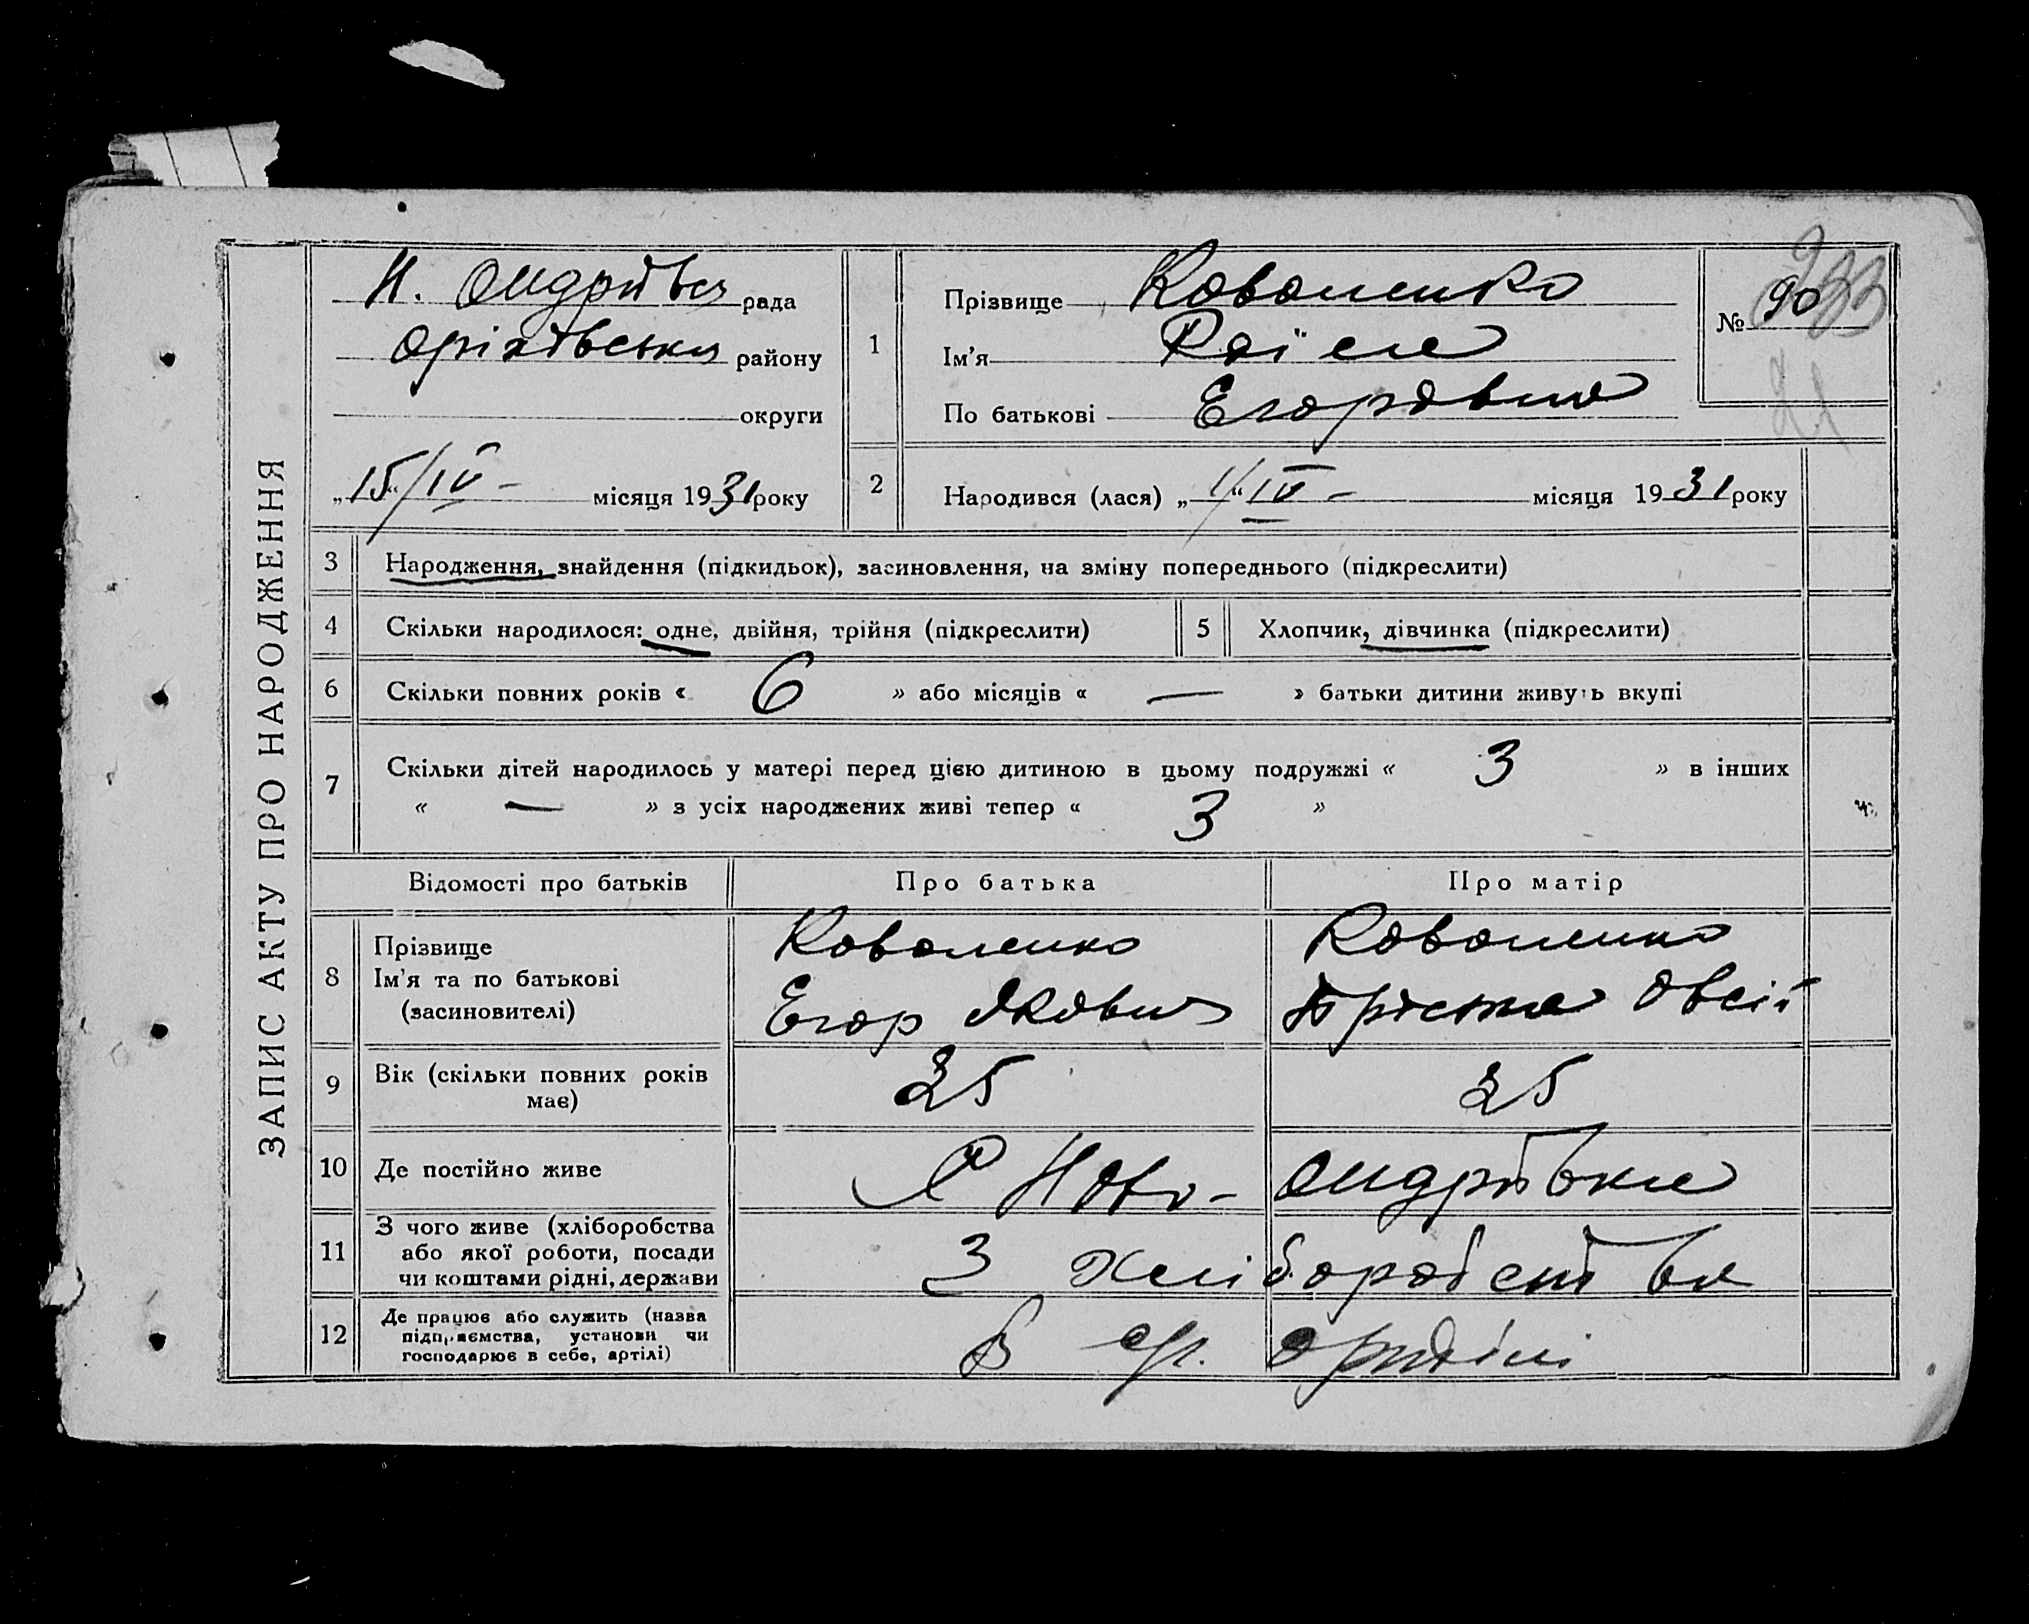 ЗАПИС АКТУ ПРО НАРОДЖЕННЯ
Н. Андріївск рада
Оріхівськи району
округи
„15“/IV – місяця 1931 року
1
Прізвище Коваленко
Ім'я Раїса
По батькові Егоровна
№ 90
2
Народився (лася) „1/“ IV – місяця 1931 року
3 Народження, знайдення (підкидьок), засиновлення, на зміну попереднього (підкреслити)
4 Скільки народилося: одне, двійня, трійня (підкреслити)
5 Хлопчик, дівчинка (підкреслити)
6 Скільки повних років « 6 » або місяців « — » батьки дитини живуть вкупі
7 Скільки дітей народилось у матері перед цією дитиною в цьому подружжі « 3 » в інших
« — » з усіх народжених живі тепер « 3 »
Відомості про батьків Про батька Про матір
8
Прізвище
Ім'я та по батькові
(засиновителі)
Коваленко
Егор Якович
Коваленко
Пріська Овсій
9 Вік (скільки повних років
має)
25 25
10 Де постійно живе
Ново- Андрівка
11
З чого живе (хліборобства
або якої роботи, посади
чи коштами рідні, держави
З хліборобства
12
Де працює або служить (назва
підприємства, установи чи
господарює в себе, артілі)
В с/г. артілі